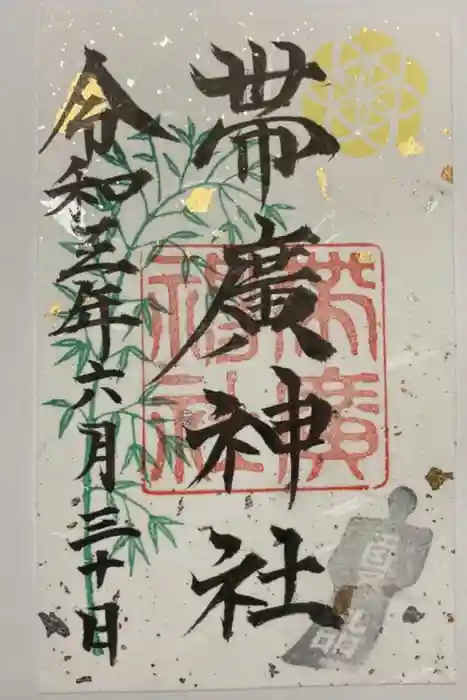 帯廣神社
令和三年六月三十日
帯廣
神社